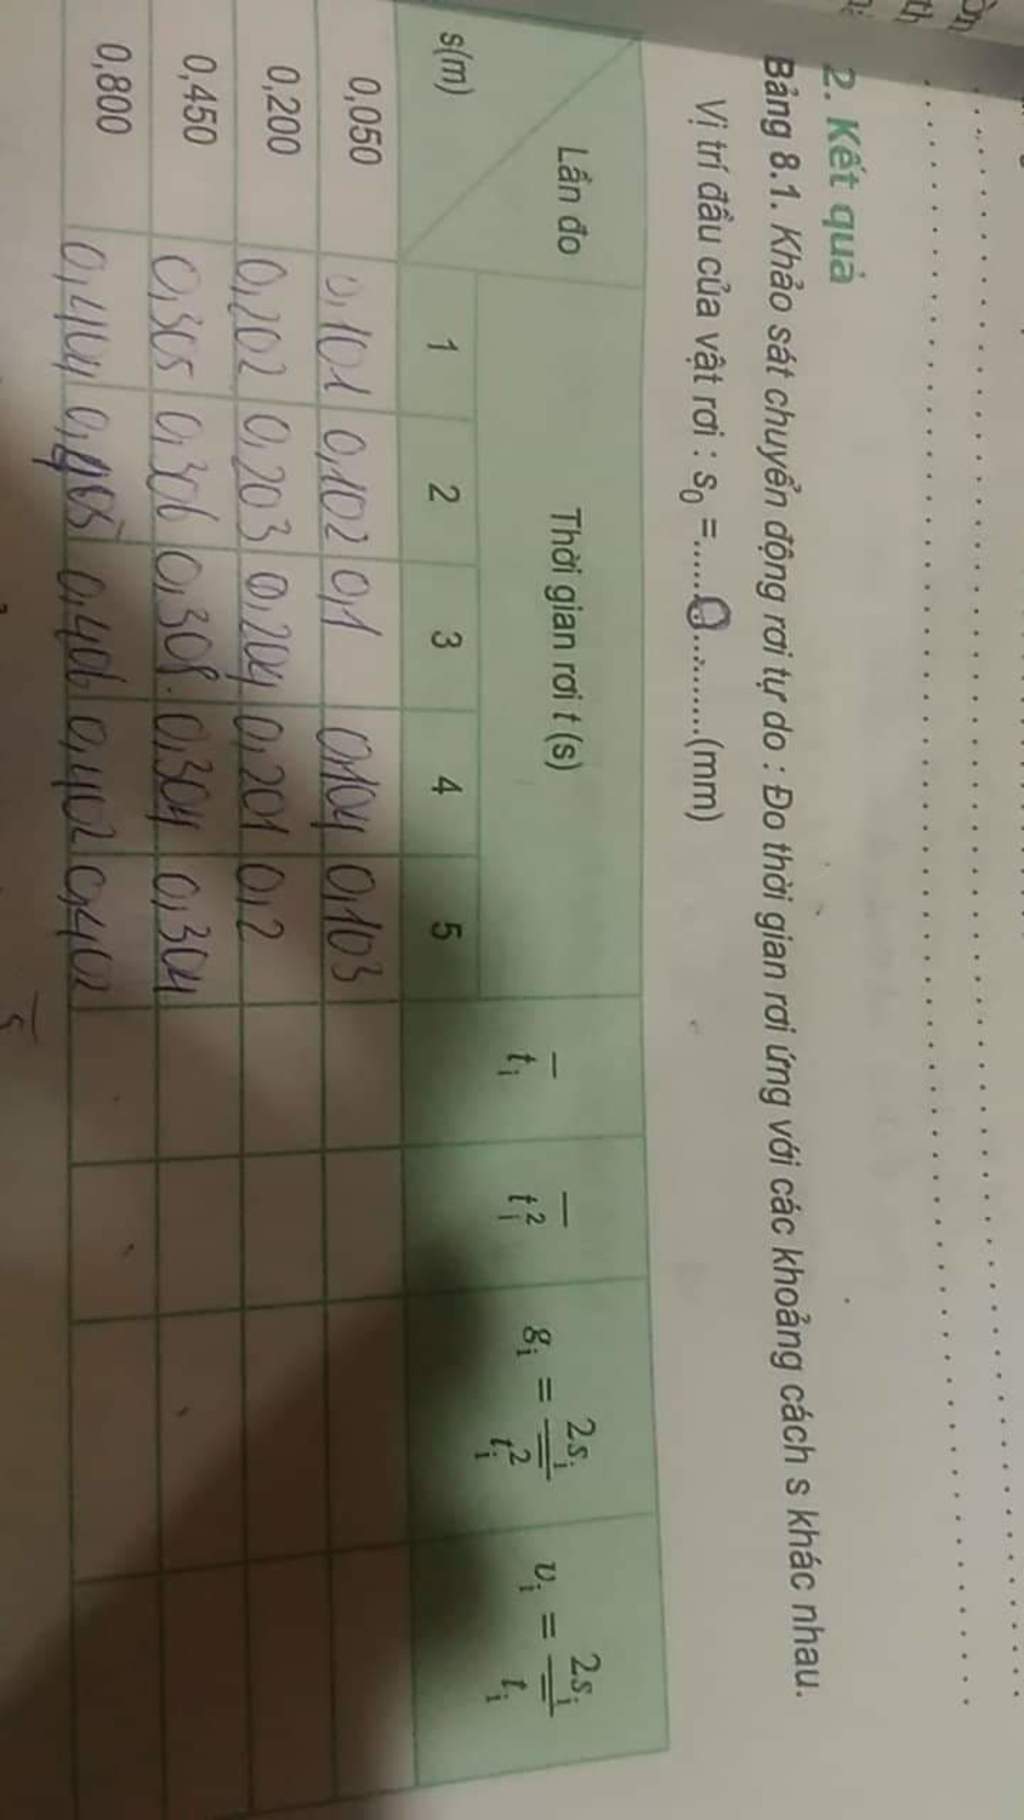 2. Kết quả
Bảng 8.1. Khảo sát chuyển động rơi tự do : Đo thời gian rơi ứng với các khoảng cách s khác nhau.
Vị trí đầu của vật rơi : s₀ =......0..........(mm)
Lần đo
s(m)
Thời gian rơi t (s)
1 2 3 4 5
t̄ᵢ
t̄ᵢ²
gᵢ = 2sᵢ / t̄ᵢ²
vᵢ = 2sᵢ / t̄ᵢ
0,050 0,101 0,102 0,1 0,104 0,103
0,200 0,202 0,203 0,204 0,201 0,2
0,450 0,305 0,306 0,308. 0,304 0,304
0,800 0,404 0,405 0,406 0,402 0,402